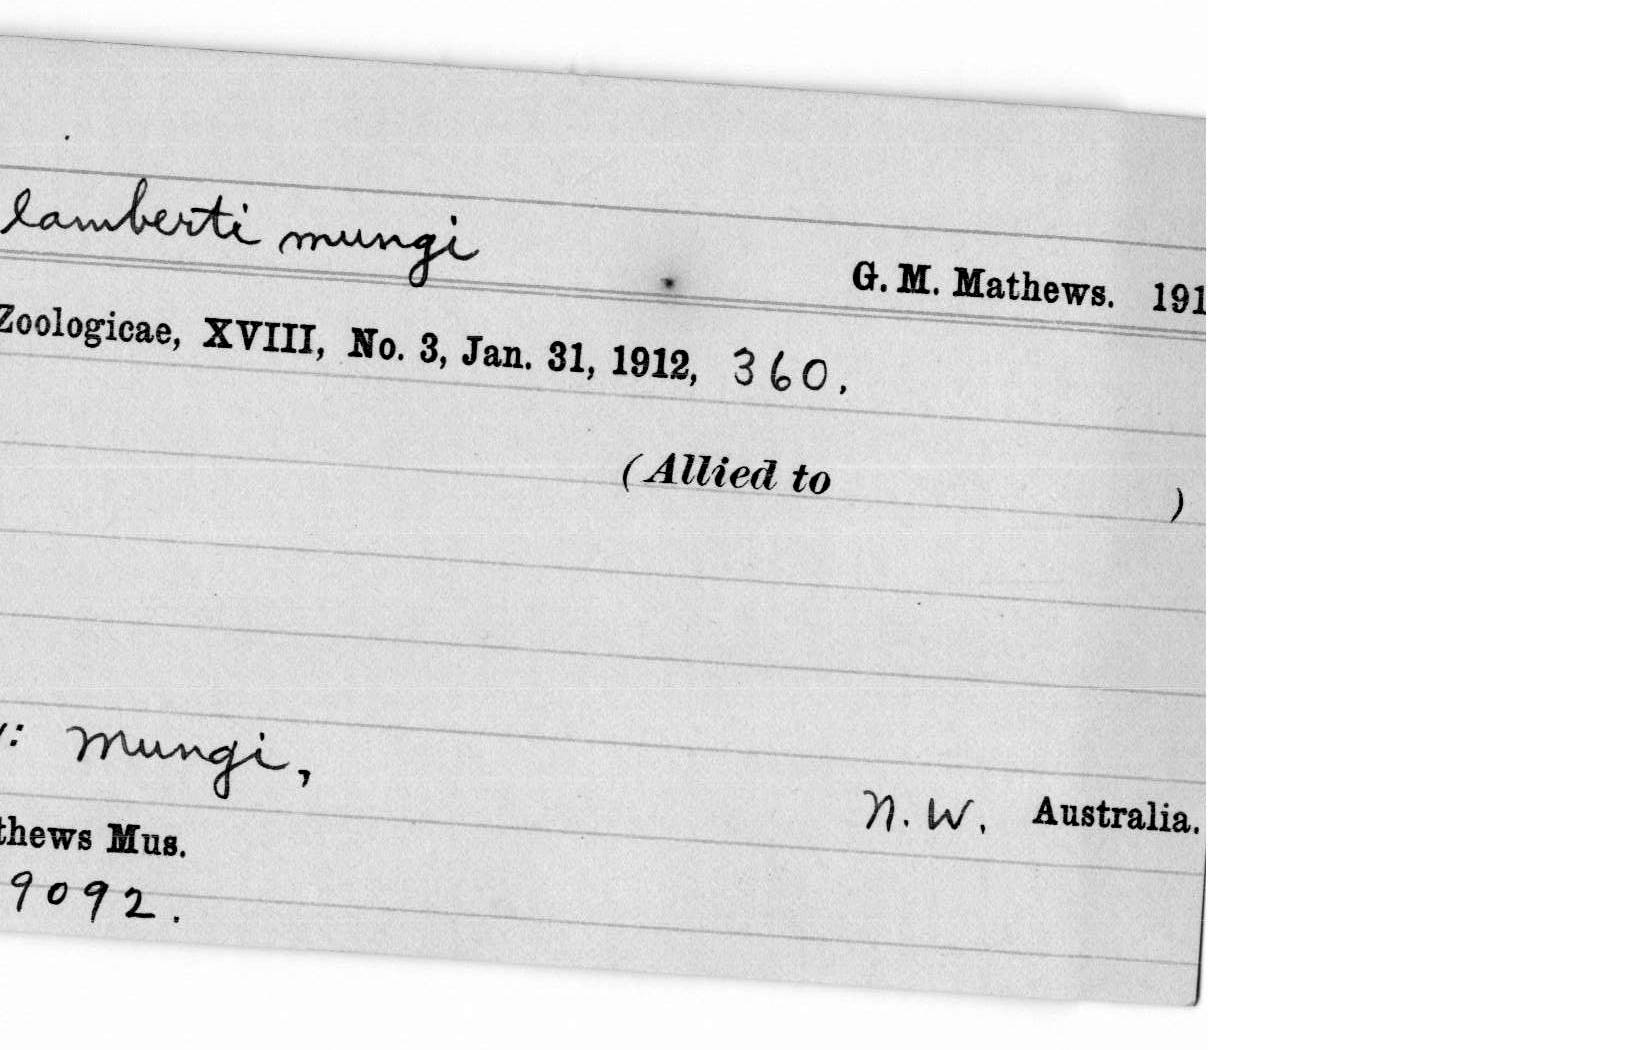 lamberti mungi G. M. Mathews. 191
Zoologicae, XVIII, No. 3, Jan. 31, 1912, 360.
(Allied to )
: Mungi, N. W. Australia.
thews Mus.
9092.